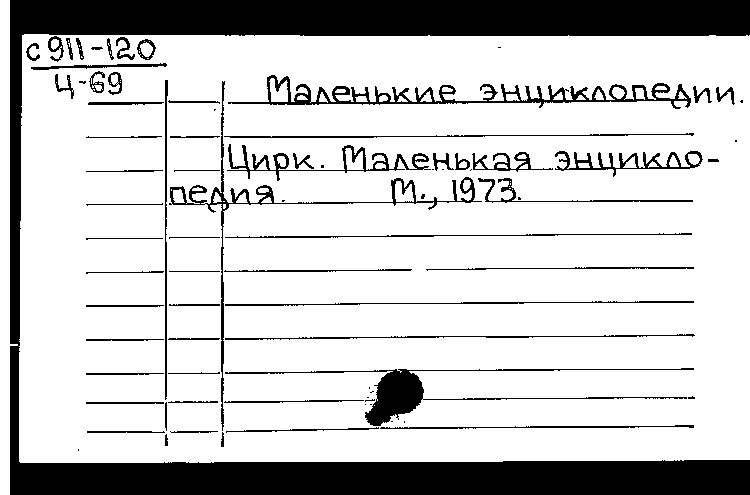 с 911-120
Ц-69
Маленькие энциклопедии.
Цирк. Маленькая энцикло-
педия. М., 1973.